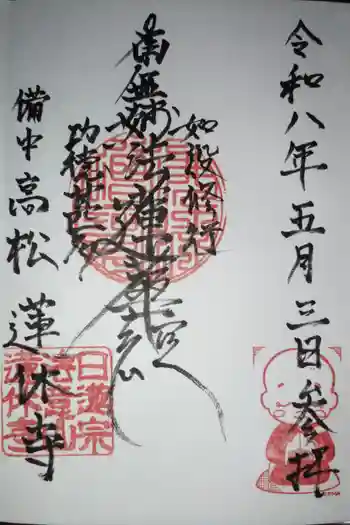 令和八年五月三日参拝
如説修行
南無妙法蓮華経
功徳甚多
備中高松 蓮休寺
日蓮宗
蓮休寺